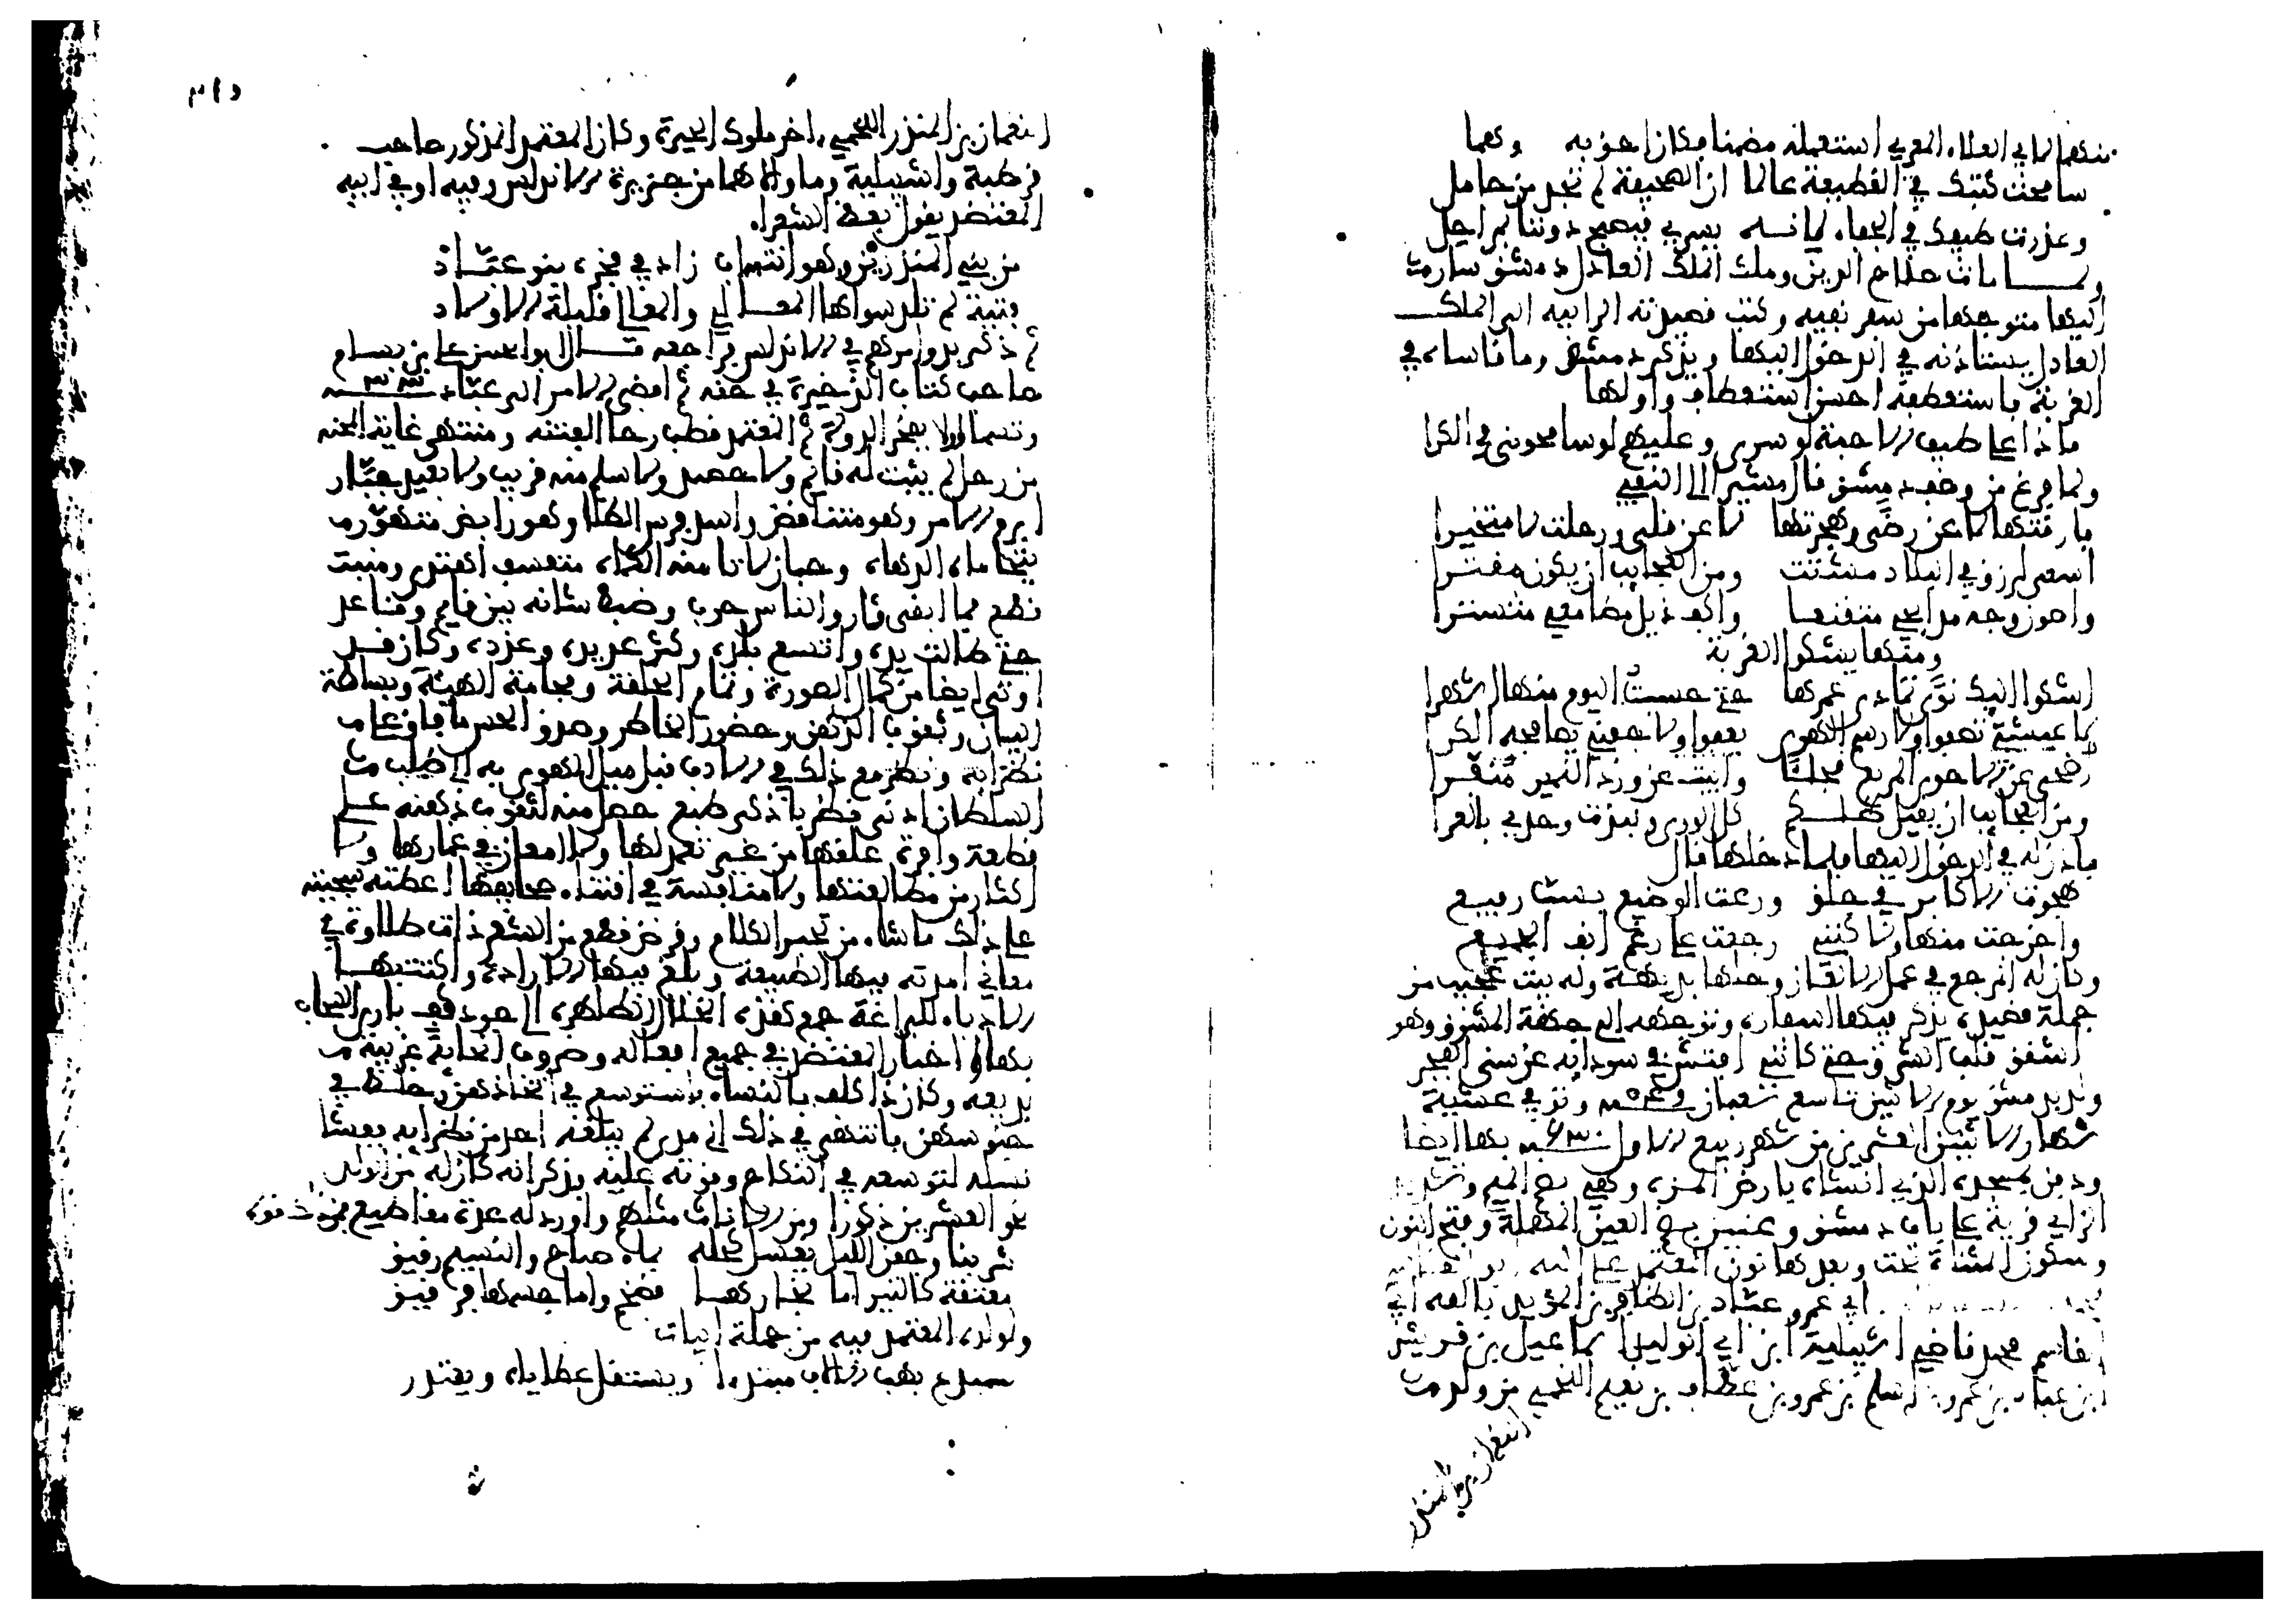 منها لابي العلاء المعري استعمله مضمنا فكان احق به وهما
سامحت كتبك في القطيعة عالما ان الصحيفة لم تجد من حامل
وعذرت طيفك في الجفاء لانه يسري فيصبح دوننا بمراحل
ولما مات صلاح الدين وملك الملك العادل دمشق سار من
اليها متوجها من سفر نفيه وكتب قصيدته الرابيه الى الملك
العادل يستاذنه في الدخول اليها ويذكر دمشق وما قاساه في
الغربة باستعطفه احسن استعطاف واولها
ماذا على طيف الاحبة لو سرى وعليهم لو سامحوني في الكرا
ولما فرغ من وصف دمشق قال مشيرا الى النفي
فارقتها لا عن رضى وهجرتها لا عن قلى ورحلت لا متخيرا
اسعى لرزق في البلاد مشتت ومن العجايب ان يكون مقترا
واصون وجه مدايحي متقنعا واكف ذيل مطامعي متسترا
ومنها يشكوا الغربة
اشكوا اليك نوى تمادى عمرها حتى حسبت اليوم منها اشهرا
لا عيشتي تصفوا ولا رسم الهوى يعفوا ولا جفني يصافحه الكرا
اضحى عن الاحوى المريع محلا وابيت عن ورد النمير منفرا
ومن العجايب ان يقيل بظلكم كل الورى ونبذت وحدي بالعرا
فاذن له في الدخول اليها فلما دخلها قال
هجوت الاكابر في جلق ورعت الوضيع بسب الرفيع
واخرجت منها ولكنني رجعت على رغم انف الجميع
وكان له في عمل الالغاز وحلها يد بديهة وله بيت عجيب من
جملة قصيدة يذكر فيها اسفاره وتوجهه الى جهة المشرق وهو
اشقق قلب الشرق حتى كانني افتش في سودايه عن سنى الفجر
ولد بدمشق يوم الاثنين تاسع شعبان وتوفي عشية
نهار الاثنين العشرين من شهر ربيع الاول بها ايضا
ودفن بمسجده الذي انشاه بارض المزة وهي بضم الميم وتشديد
الزاي قرية على باب دمشق وعنين بضم العين المهملة وفتح النون
وسكون المثناة تحت وبعدها نون المعتمد على الله ابو القاسم
ابي عمرو عباد بن الظافر بن المؤيد بالله ابي
القاسم محمد قاضي اشبيلية ابن ابي الوليد اسماعيل بن قريش
ابن عباد بن عمرو بن اسلم بن عمرو بن عطاف بن نعيم اللخمي من ولد
النعمان بن المنذر
٣١٥
النعمان بن المنذر اللخمي اخر ملوك الحيرة وكان المعتمد المذكور صاحب
قرطبة واشبيلية وما والاهما من جزيرة الاندلس وفيه او في ابيه
المعتضد يقول بعض الشعراء
من بني المنذرين وهو انتساب زاد في فخره بنو عباد
فتية لم تلد سواها المعالي والمعالي قليلة الاولاد
ثم ذكر بدو امرهم في الاندلس فراجعه قال ابو الحسن علي بن بسام
صاحب كتاب الذخيرة في حقه ثم افضى الامر الى عباد سنة ٤٣٣
وتسما اولا بفخر الدولة ثم المعتضد قطب رحا الفتنة ومنتهى غاية المحنة
من رجل لم يثبت له قايم ولا حصيد ولا سلم منه قريب ولا بعيد جبار
ابرم الامر وهو متناقض واسد فرس الطلا وهو رابض متهور
يتحاماه الدهاة وجبان لا تامنه الكماة متعسف اهتدى ومنبت
قطع فما ابقى ثار والناس حرب وضبط شانه بين قايم وقاعد
حتى طالت يده واتسع بلده وكثر عديده وعدده وكان قد
اوتي ايضا من جمال الصورة وتمام الخلقة وفخامة الهيئة وبساطة
البنان وثقوب الذهن وحضور الخاطر وصدق الحس ما فاق على
نظرايه ونظر مع ذلك في الادب قبل ميل الهوى به الى طلب
السلطان ادنى نظر باذكى طبع حصل منه لثقوب ذهنه على
قطعة وافرة علقها من غير تعمد لها ولا امعان في غمارها ولا
اكثار من مطالعتها ولا منافسة في اقتناء صحايفها اعطته سجيته
على ذلك ما شاء من تحبير الكلام وقرض قطع من الشعر ذات طلاوة في
معاني امدته فيها الطبيعة وبلغ فيها الارادة واكتتبها
الادباء للبراعة جمع هذه الخلال الظاهرة الى جود كف باري السحاب
بها واخبار المعتضد في جميع افعاله وضروب انحايه غريبة
بديعة وكان ذا كلف بالنساء فاستوسع في اتخاذهن وخلط في
جنوسهن فانتهى في ذلك الى مدى لم يبلغه احد من نظرايه ففشا
نسله لتوسعه في النكاح وقوته عليه فذكر انه كان له من الولد
نحو العشرين ذكورا ومن الاناث مثلهم واورد له عدة مقاطيع فمن ذلك قوله
شربنا وجفن الليل يغسل كحله بماء صباح والنسيم رقيق
معتقة كالتبر اما نجارها فضخم واما جسمها فرقيق
ولولده المعتمد فيه من جملة ابيات
سميدع يهب الالاف مبتدءا ويستقل عطاياه ويعتذر